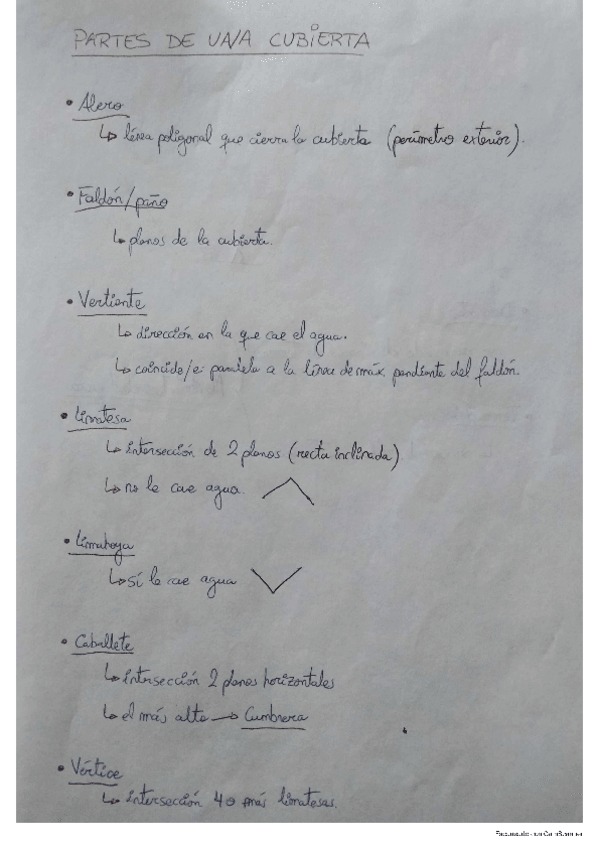 PARTES DE UNA CUBIERTA
• Alero
↳ línea poligonal que cierra la cubierta (perímetro exterior).
• Faldón/paño
↳ planos de la cubierta.
• Vertiente
↳ dirección en la que cae el agua.
↳ coincide/es paralela a la línea de máx. pendiente del faldón.
• Limatesa
↳ intersección de 2 planos (recta inclinada)
↳ no le cae agua.
• Limahoya
↳ sí le cae agua
• Caballete
↳ intersección 2 planos horizontales
↳ el más alto → Cumbrera
• Vértice
↳ intersección 4 o más limatesas.